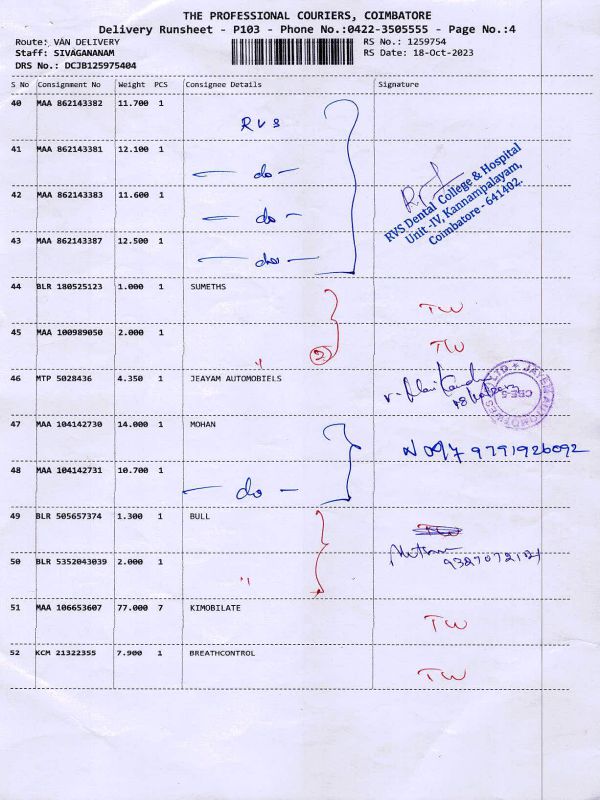 THE PROFESSIONAL COURIERS, COIMBATORE
Delivery Runsheet - P103 - Phone No.:0422-3505555 - Page No.:4
Route: VAN DELIVERY
RS No.: 1259754
Staff: SIVAGANANAM
RS Date: 18-Oct-2023
DRS No.: DCJB125975404
S No Consignment No Weight PCS Consignee Details Signature
40 MAA 862143382 11.700 1
RVS
41 MAA 862143381 12.100 1
— do —
42 MAA 862143383 11.600 1
— do —
43 MAA 862143387 12.500 1
— do —
RVS Dental College & Hospital
Unit -IV, Kannampalayam,
Coimbatore - 641402.
44 BLR 180525123 1.000 1 SUMETHS
TW
45 MAA 100989050 2.000 1
" 2 TW
46 MTP 5028436 4.350 1 JEAYAM AUTOMOBIELS
47 MAA 104142730 14.000 1 MOHAN
9791926092
48 MAA 104142731 10.700 1
— do —
49 BLR 505657374 1.300 1 BULL
50 BLR 5352043039 2.000 1
"
51 MAA 106653607 77.000 7 KIMOBILATE
TW
52 KCM 21322355 7.900 1 BREATHCONTROL
TW